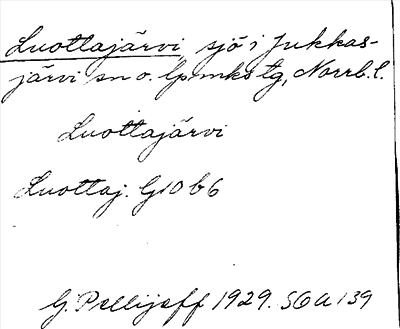 Luottajärvi, sjö i Jukkas-
järvi sn o. lpmkstg, Norrb. l.
Luottajärvi
Luottaj. G10 b6
G. Pellijeff 1929. SOA 139